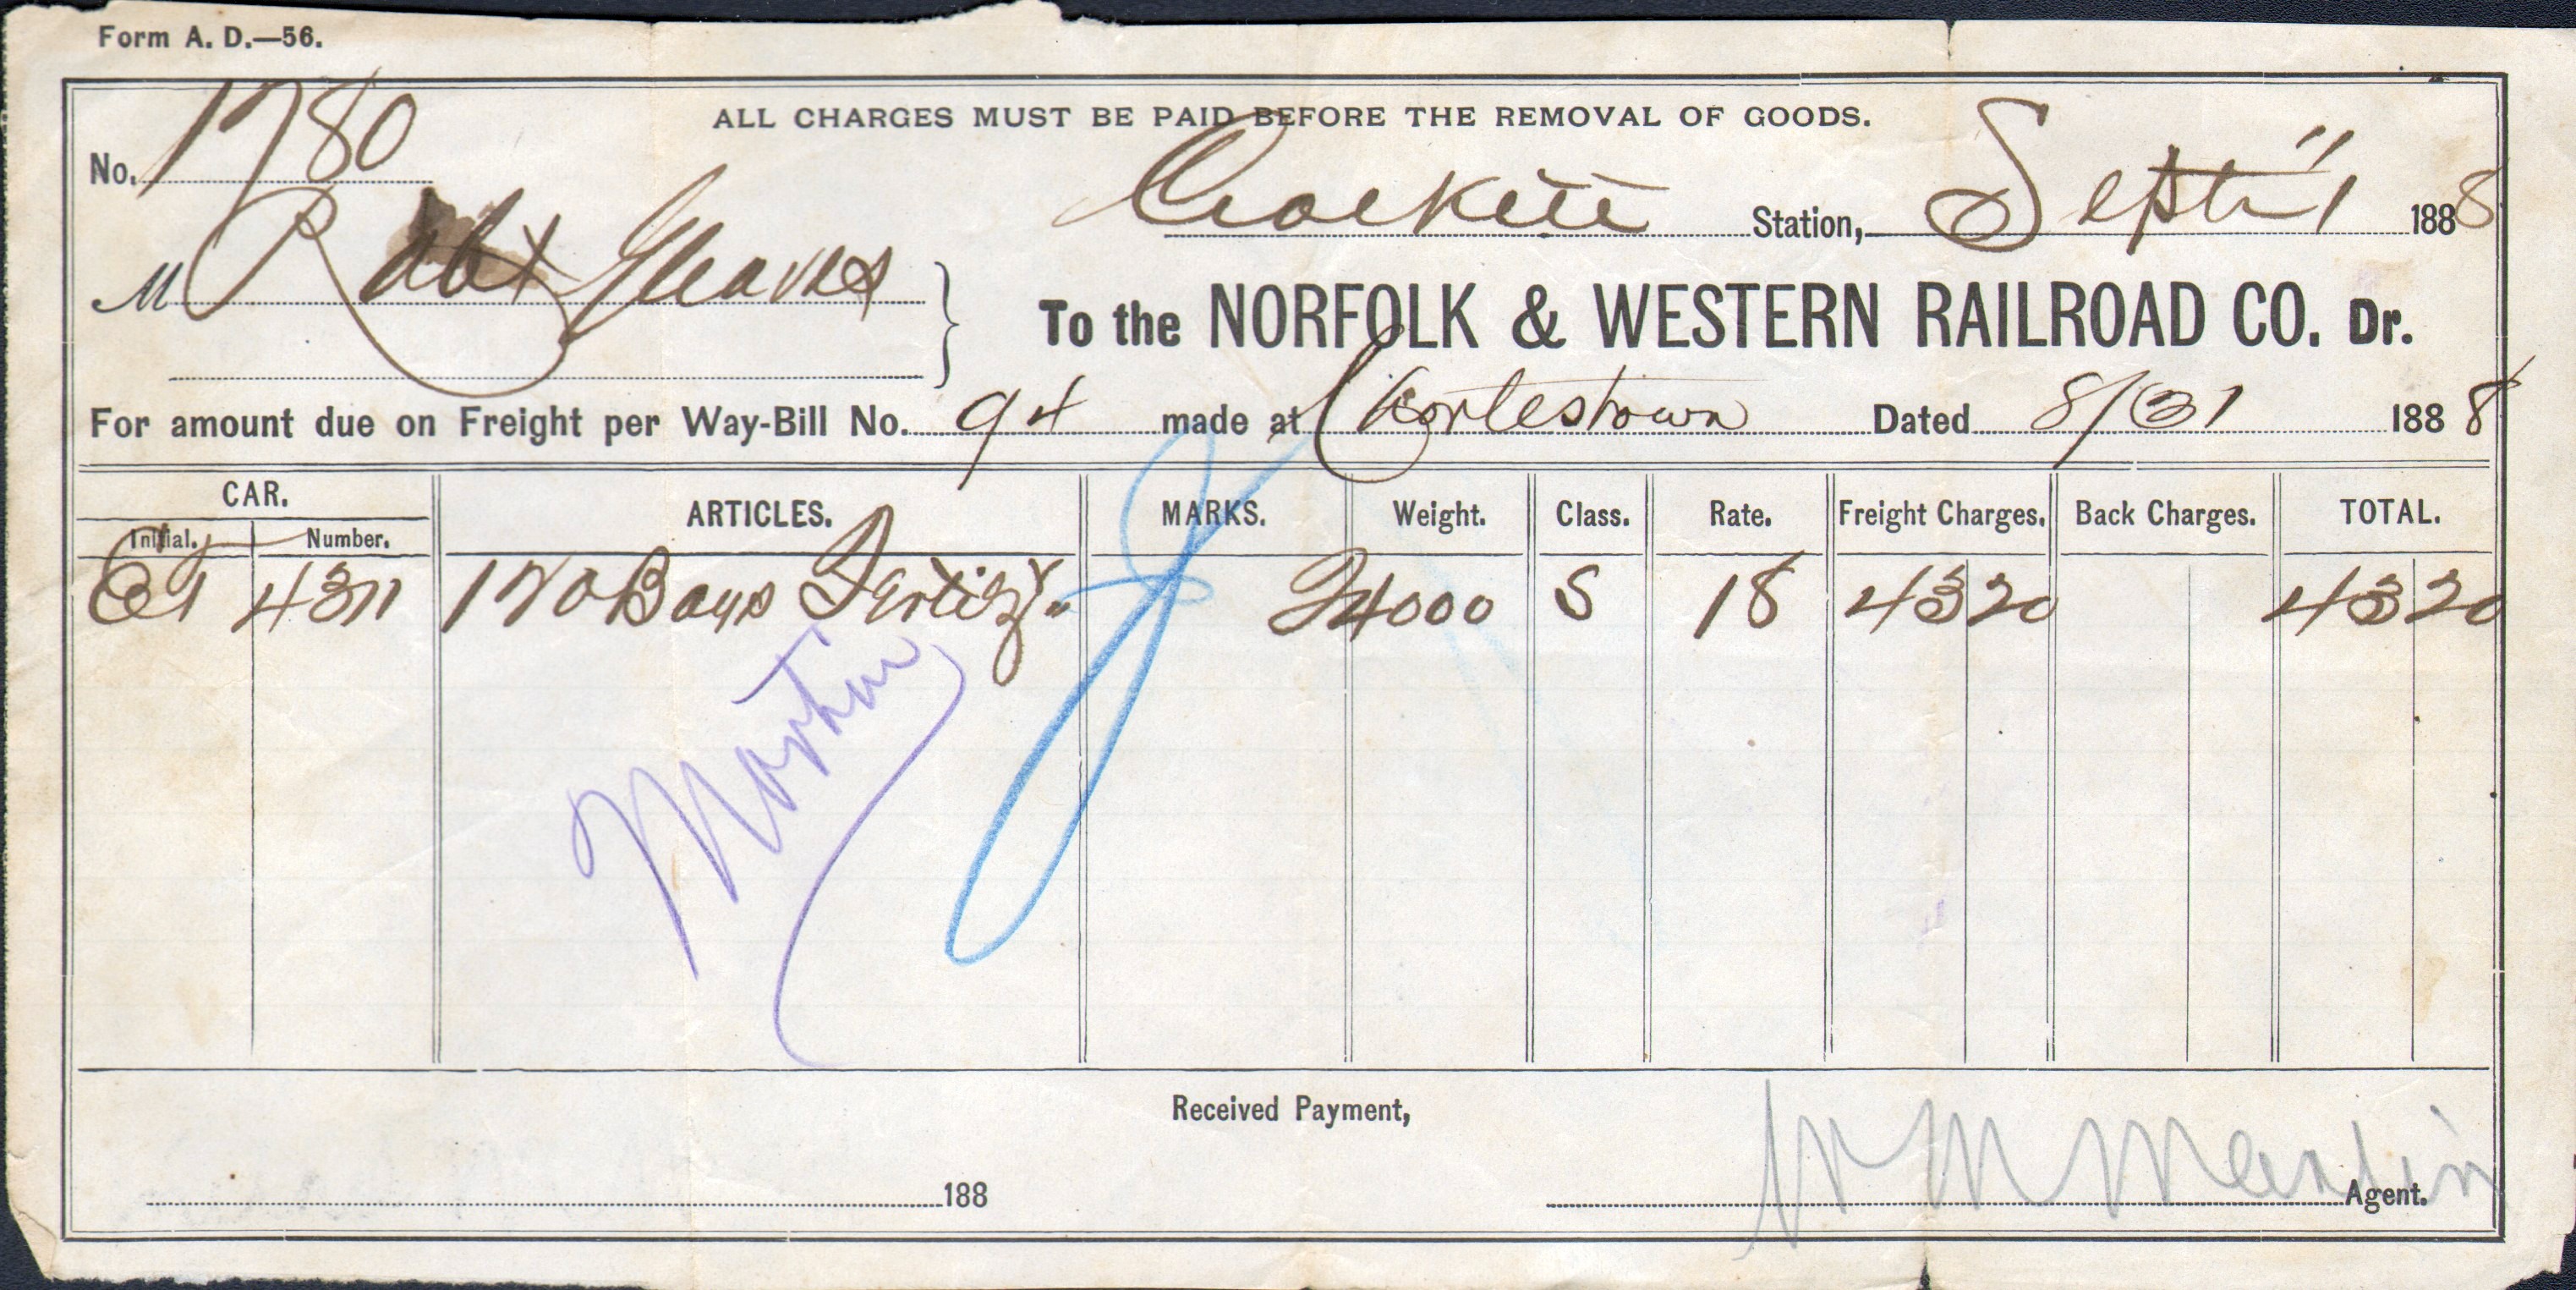 Form A. D.—56.
ALL CHARGES MUST BE PAID BEFORE THE REMOVAL OF GOODS.
No. 1780
Crockett Station, Sept 1" 1888
M Robt Gleaves
To the NORFOLK & WESTERN RAILROAD CO. Dr.
For amount due on Freight per Way-Bill No. 94 made at Charlestown Dated 8/31 1888
CAR. ARTICLES. MARKS. Weight. Class. Rate. Freight Charges. Back Charges. TOTAL.
Initial. Number.
4311 120 Bags 24000 S 18 43 20 43 20
Martin
Received Payment,
188
W M Martin Agent.